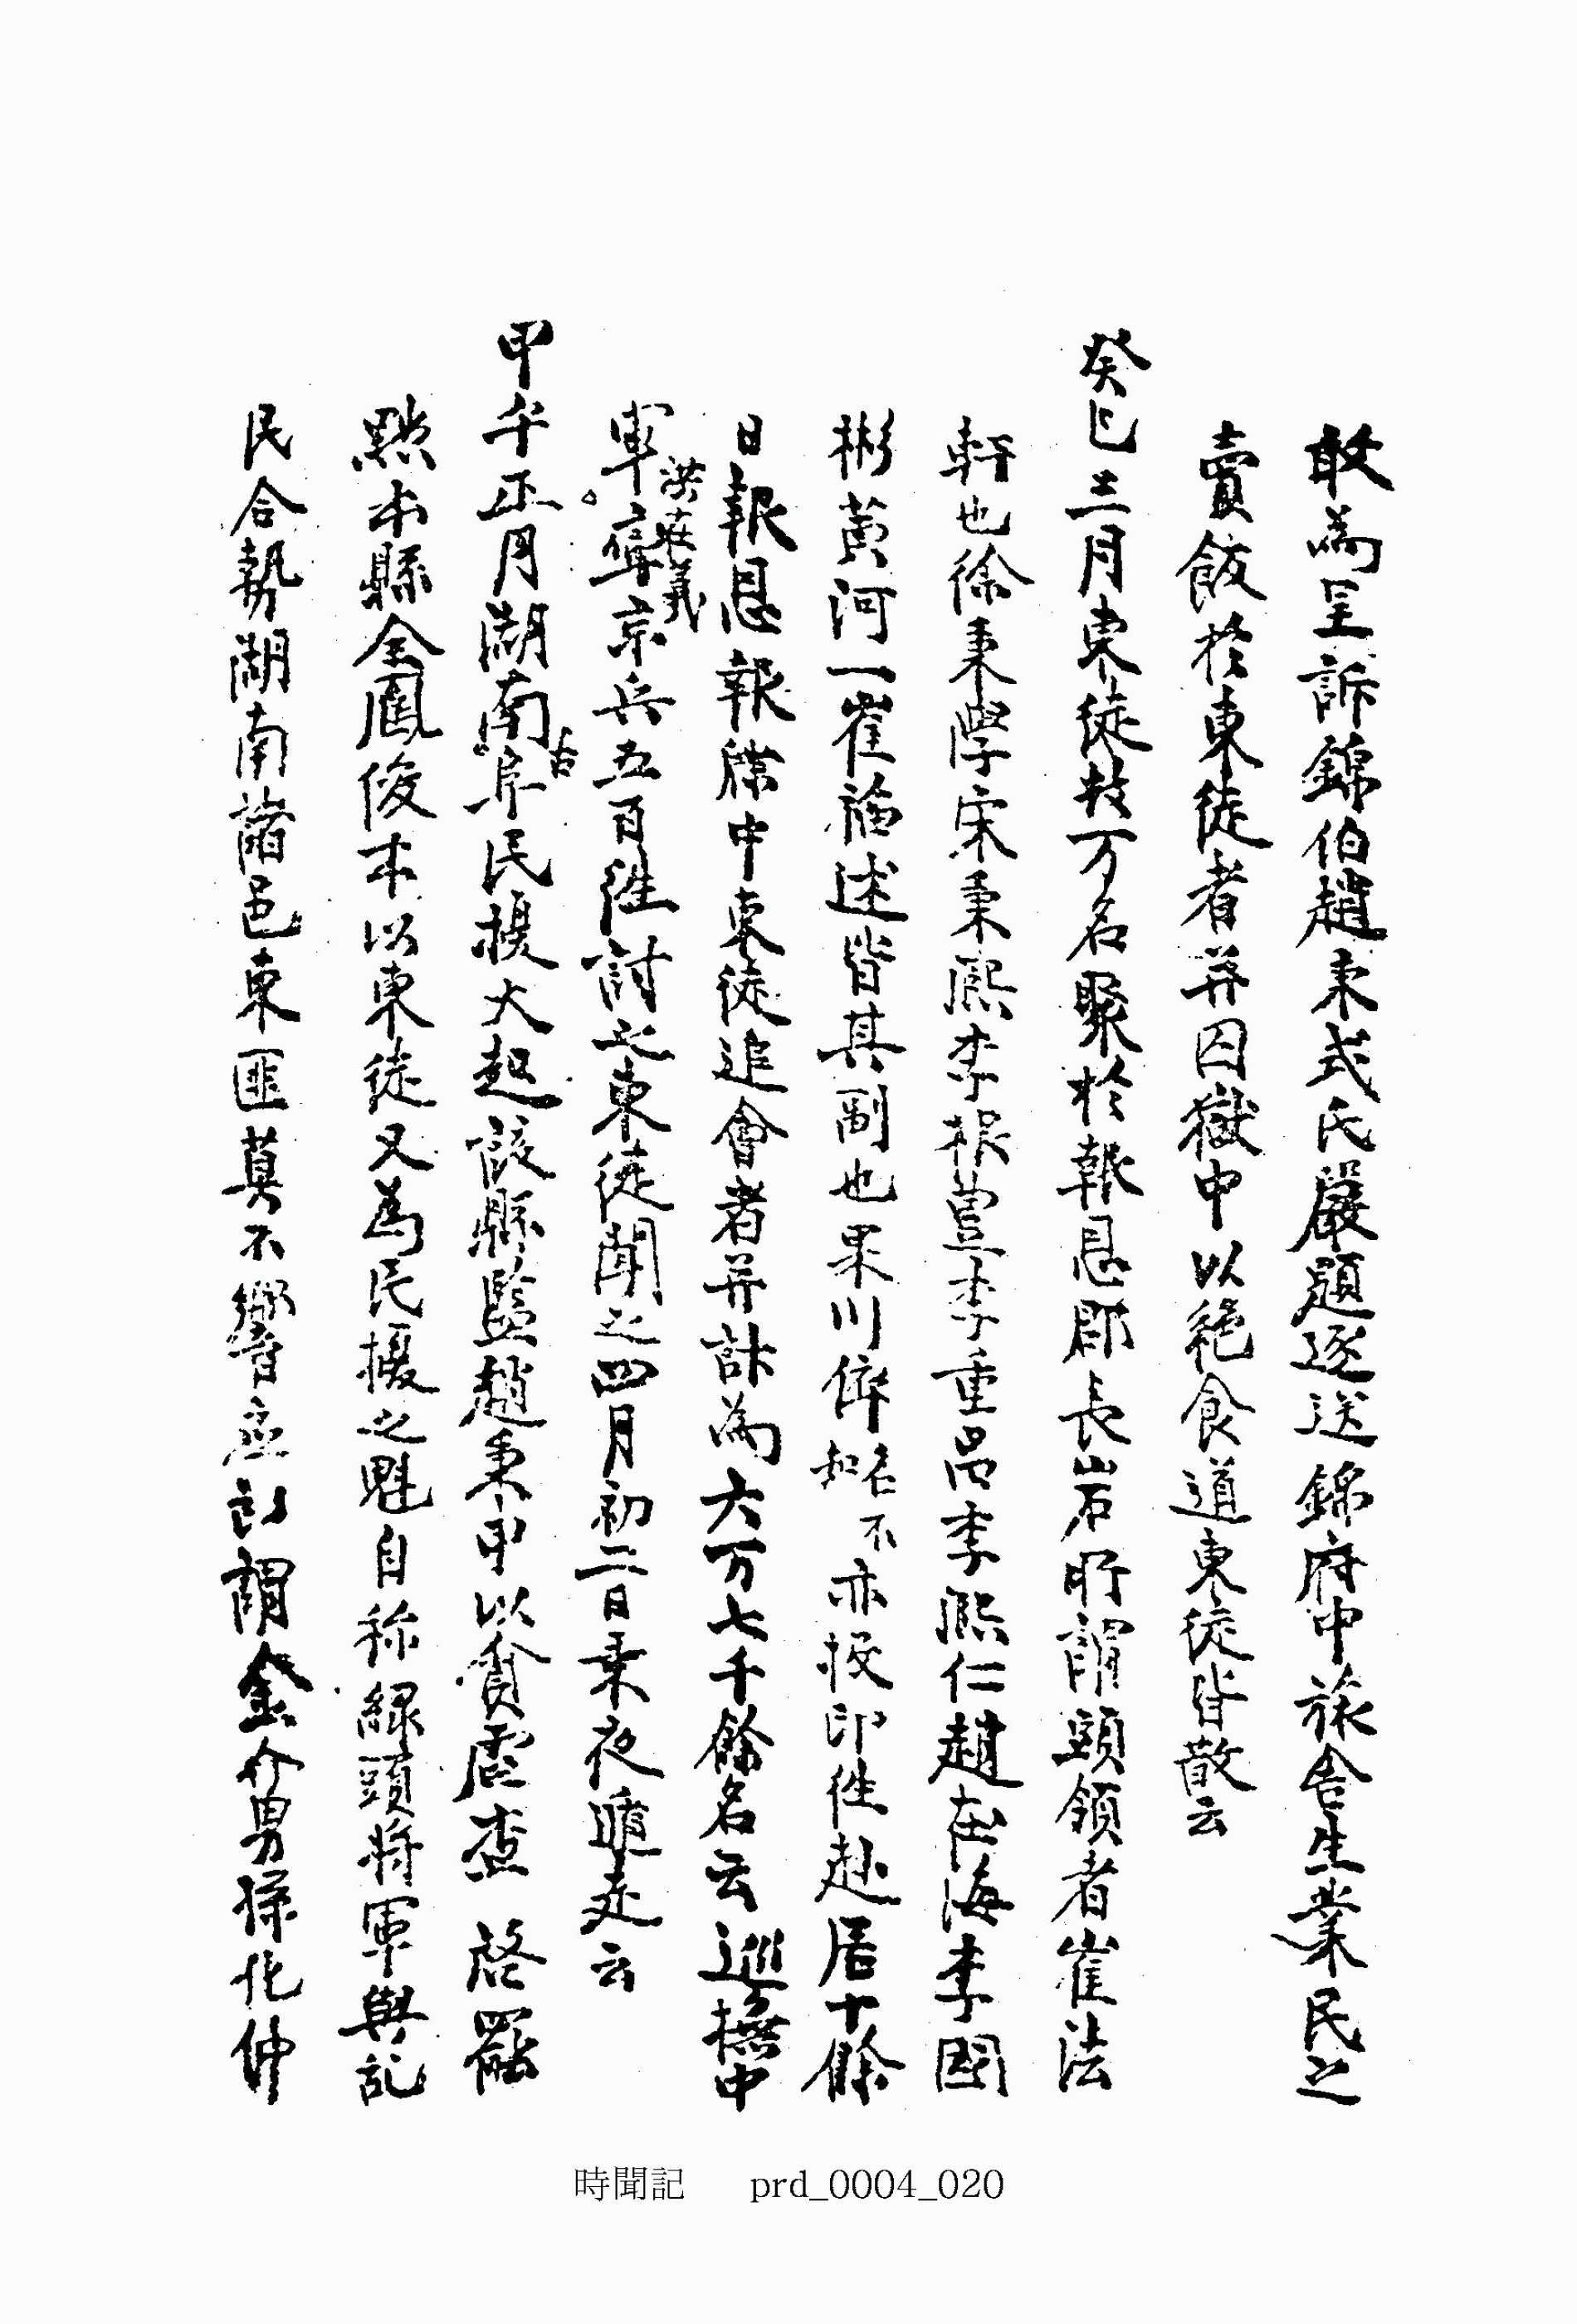 敢為呈訴錦伯趙秉式氏嚴題逐送錦府中旅舍生業民之
賣飯於東徒者并囚獄中以絶食道東徒皆散云
癸巳三月東徒數万名聚於報恩郡長岩所謂頭領者崔法
軒也徐秉學宋秉熙李根豊李重昌李熙仁趙在海李國
彬黃河一崔福述皆其副也果川倅名不知亦投印往赴居十餘
日報恩報牒中東徒追會者并計為六万七千餘名云巡撫中
軍洪在羲率京兵五百往討之東徒聞之四月初二日乘夜遁走云
甲午正月湖南古阜民擾大起該縣監趙秉甲以貪虐查啓罷
黜本縣全鳳俊本以東徒又為民擾之魁自称綠頭將軍與乱
民合勢湖南諸邑東匪莫不響應所謂金介男孫化仲
時聞記 prd_0004_020